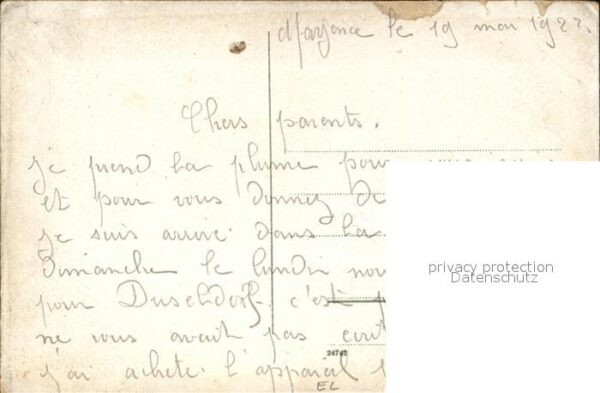 Mayence le 19 mai 1922.
Chers parents.
je prend la plume pour
et pour vous donnez de
je suis arrivé dans la
dimanche le lundi nou
pour Duseldorf. c'est
ne vous avait pas ecrit
j'ai acheté l'appareil
24742
EL
privacy protection
Datenschutz